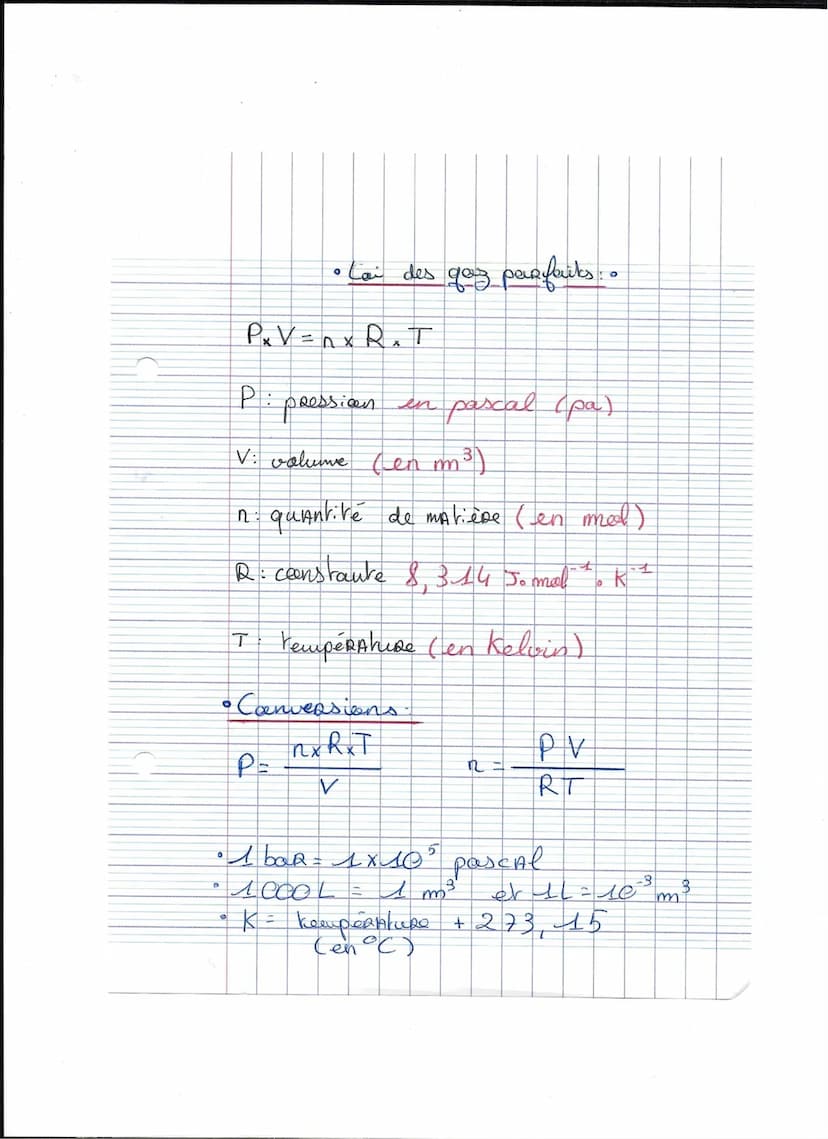 • Loi des gaz parfaits : •
P x V = n x R x T
P : pression en pascal (pa)
V : volume (en m³)
n : quantité de matière (en mol)
R : constante 8,314 J. mol⁻¹ . K⁻¹
T : température (en Kelvin)
• Conversions.
P = n x R x T / V n = P V / R T
• 1 bar = 1 x 10⁵ pascal
• 1000 L = 1 m³ et 1L = 10⁻³ m³
• K = température + 273,15
(en °C)